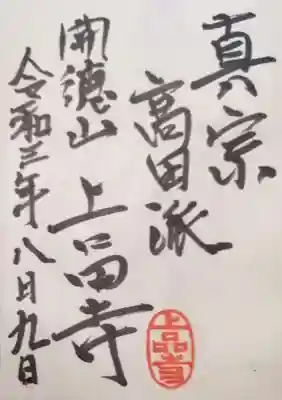 真宗
高田派
開徳山 上品寺
令和三年八月九日
上品寺